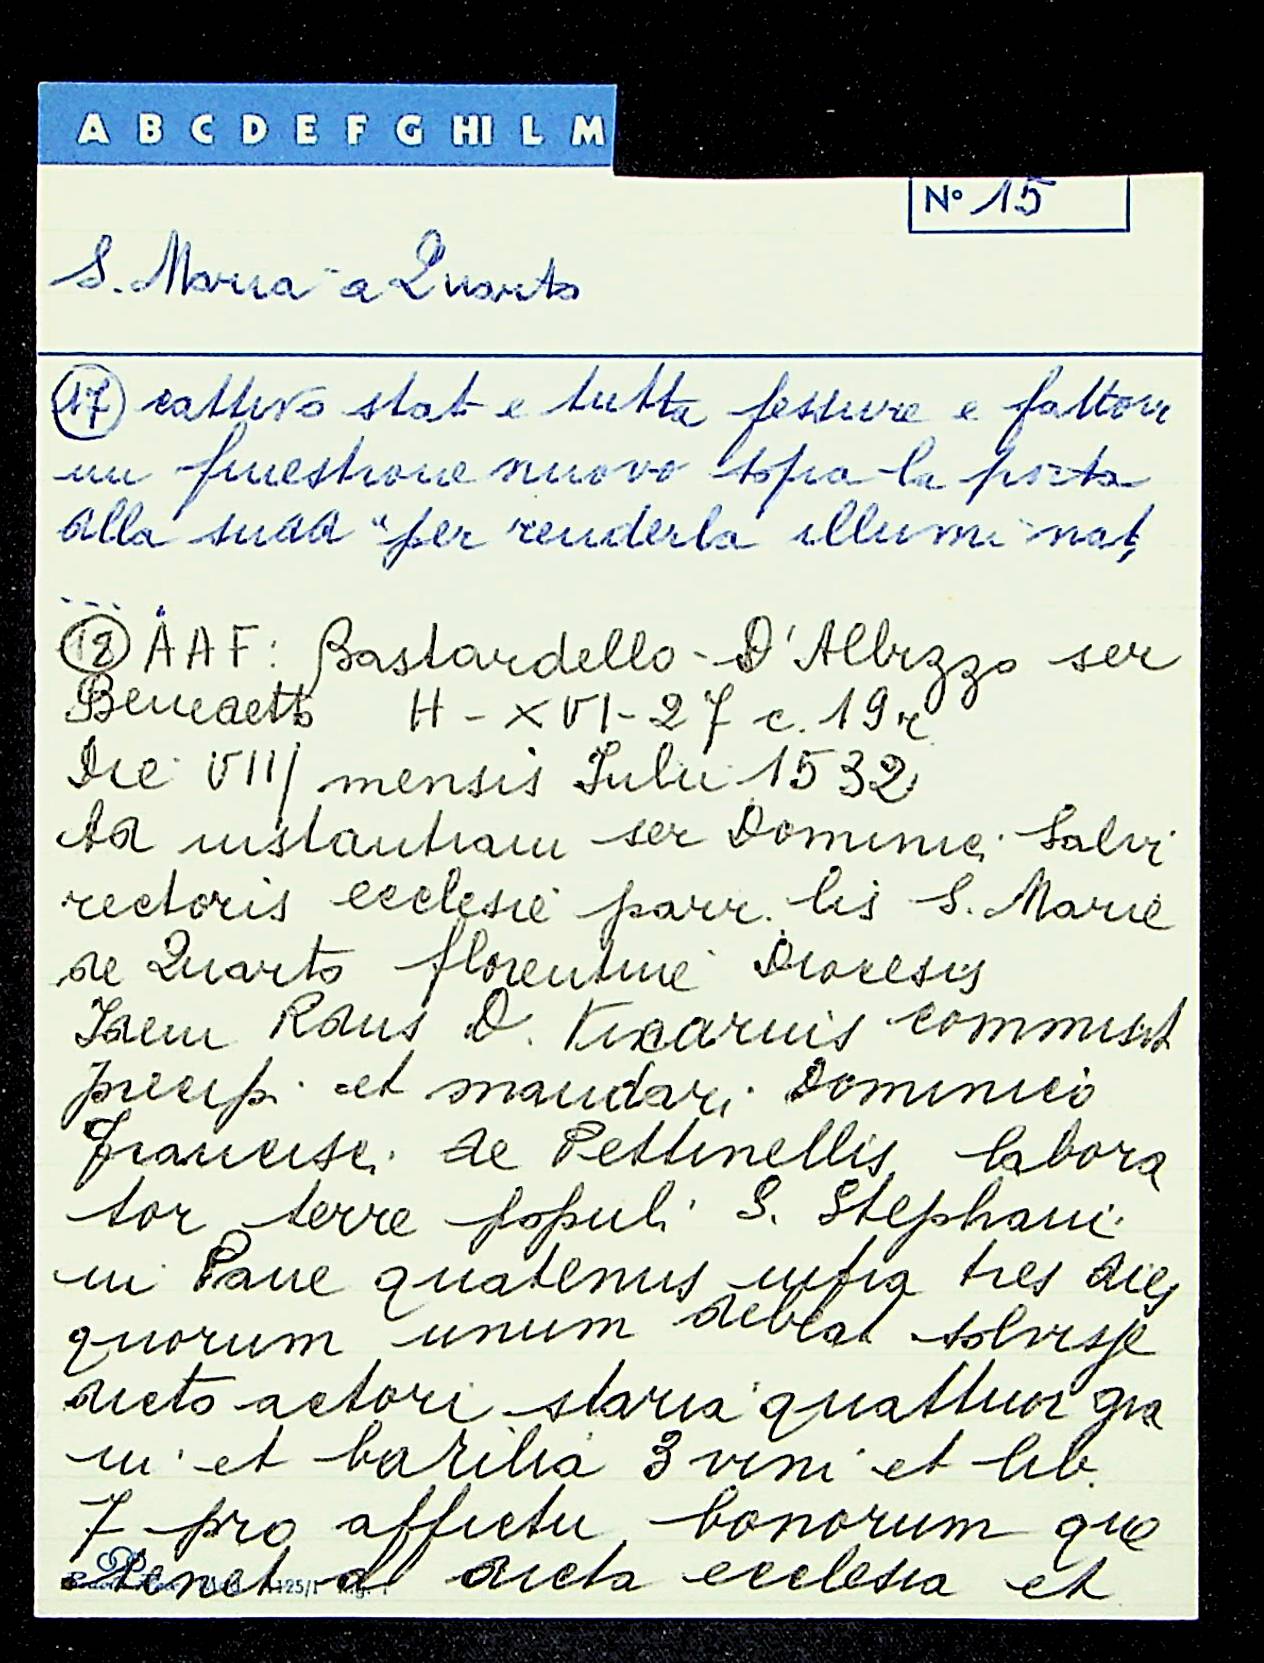 A B C D E F G HI L M
N° 15
S. Maria a Quarto
17 cattivo stat e tutta fessure e fattovi
un finestrone nuovo sopra la porta
alla sudd "per renderla illuminat,
18 AAF: Bastardello - D'Albizzo ser
Benedetto H - XVI - 27 c. 19 r
Die VIII mensis Iulii 1532
Ad instantiam ser Dominici Salvi
rectoris ecclesie parr. lis S. Marie
de Quarto florentine Diocesis
Idem Rdus D. Vicarius commisit
precip. et mandari Dominico
Francisci de Pettinellis labora
tor terre populi S. Stephani
in Pane quatenus infra tres dies
quorum unum debeat solvisse
dicto actori staria quattuor gra
ni et barilia 3 vini et lib.
7 pro affictu bonorum que
tenet a dicta ecclesia et